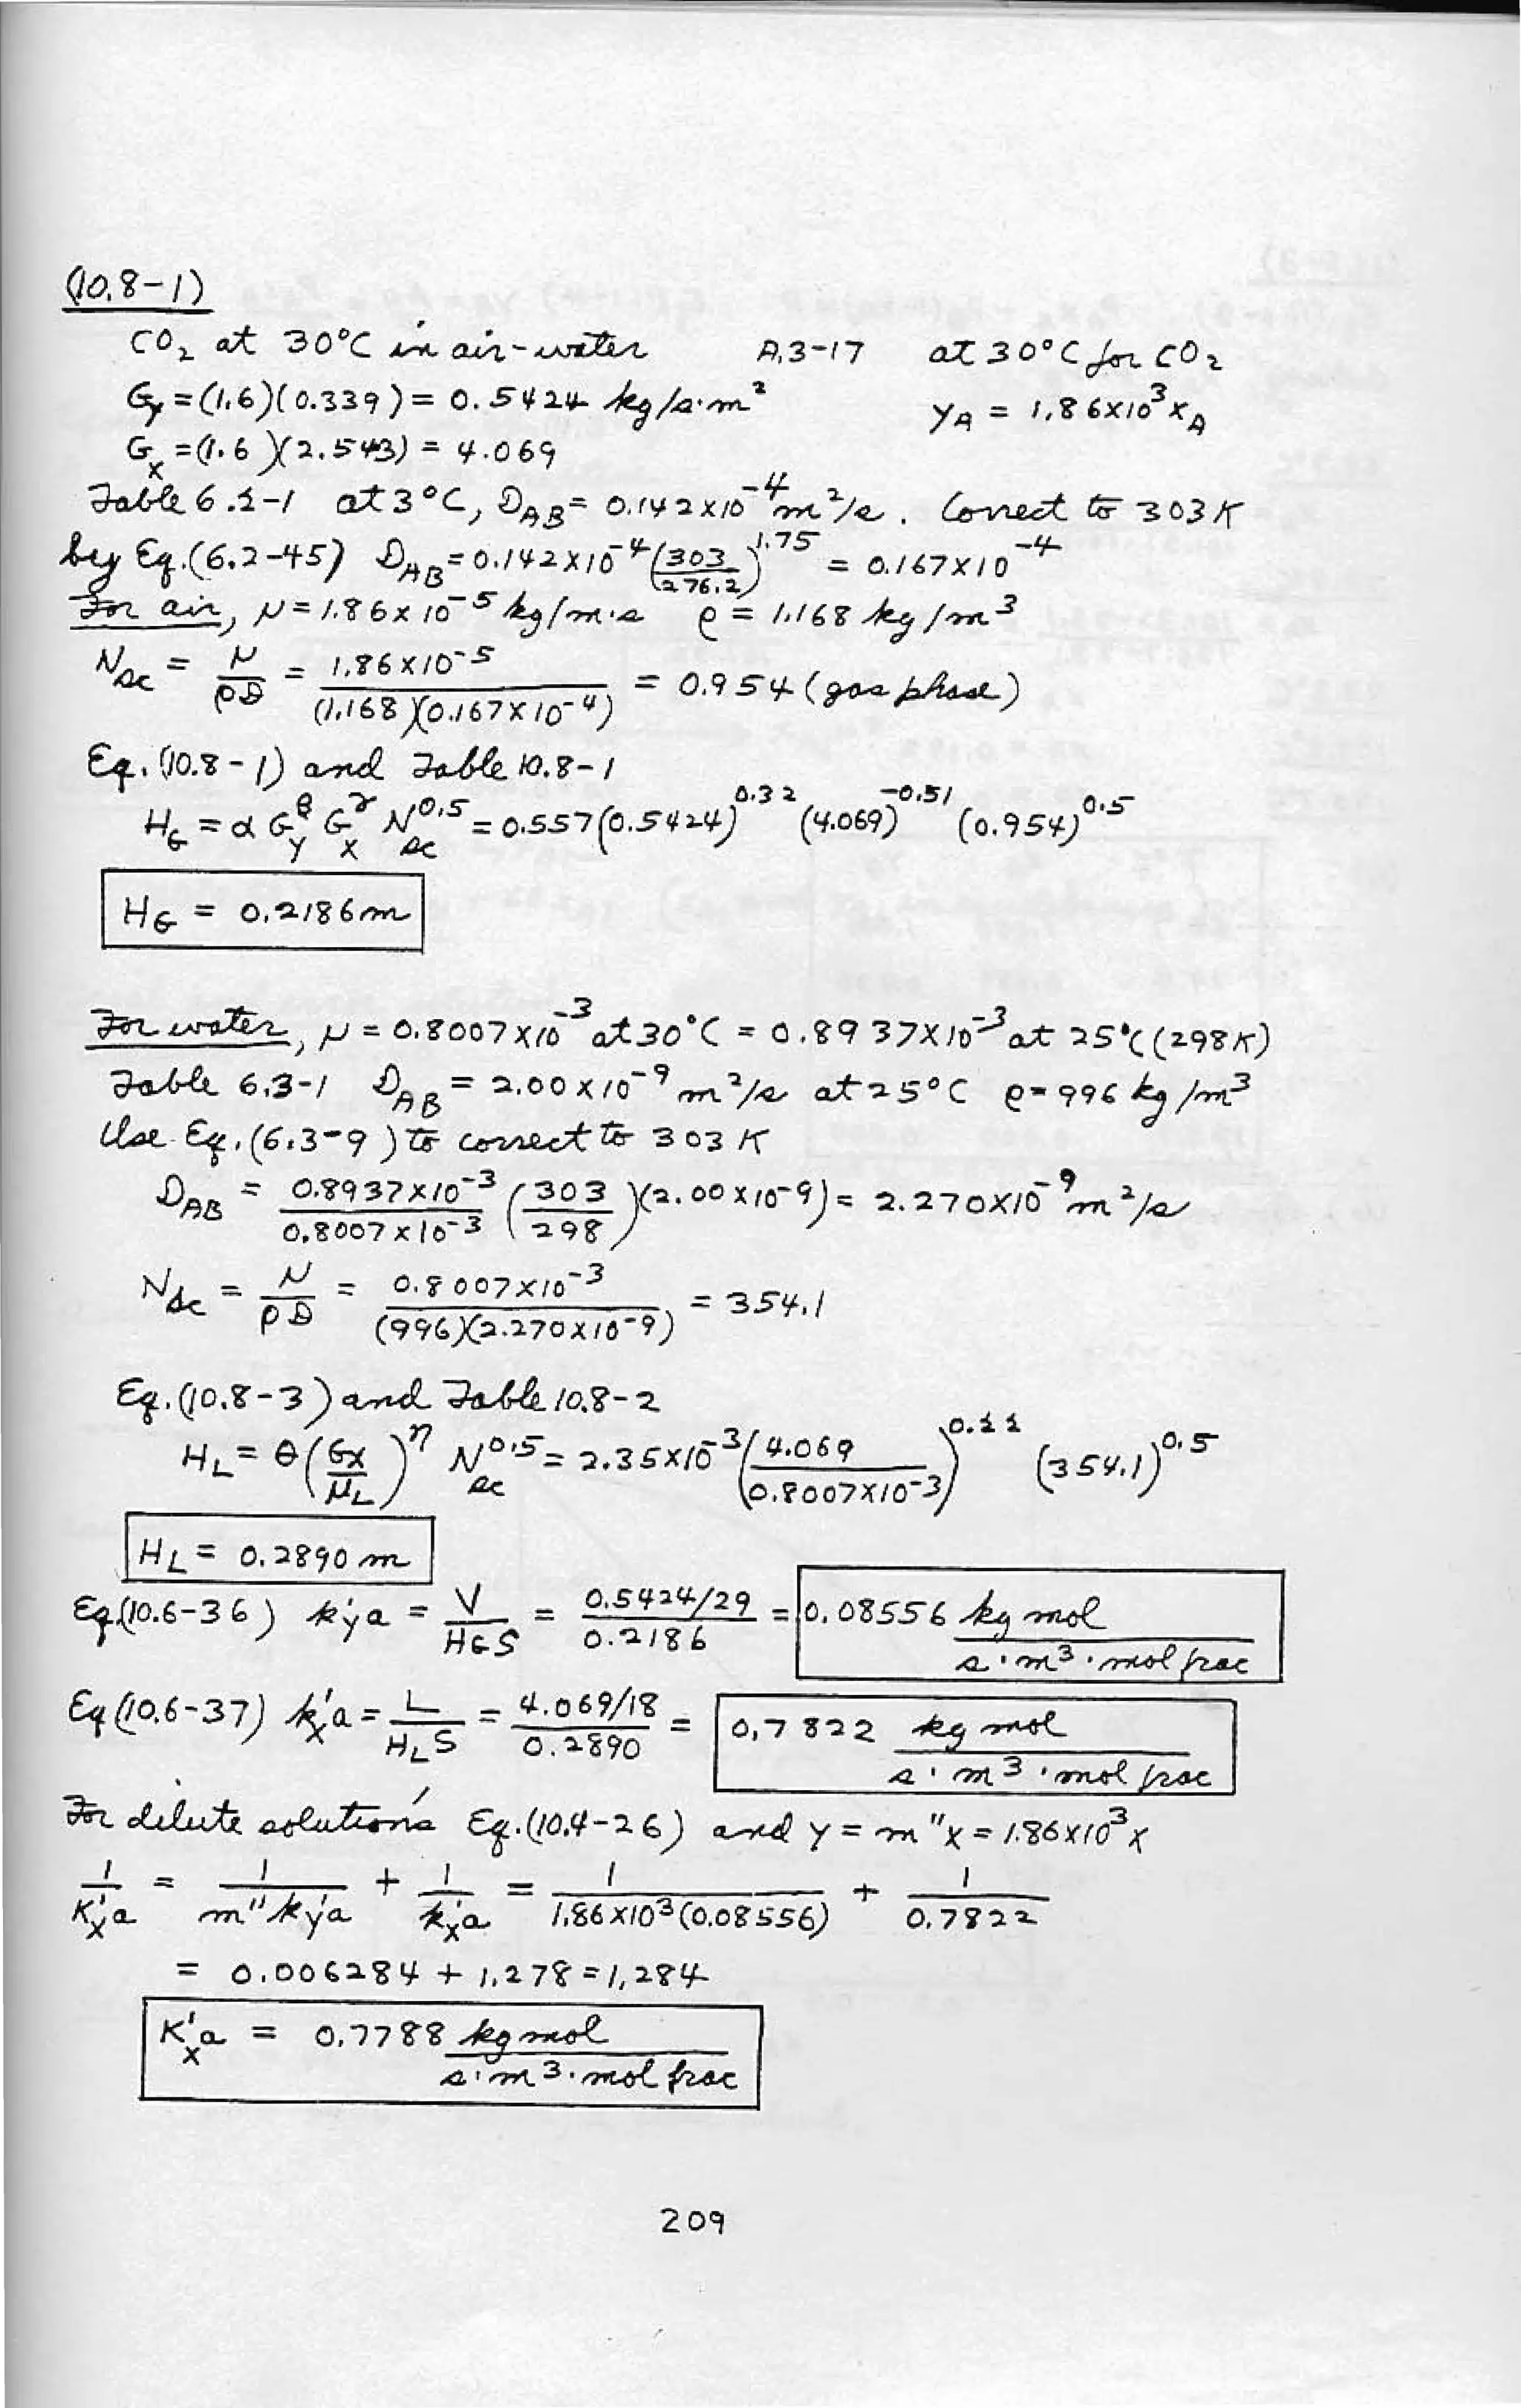 (10.8-1)
CO₂ at 30°C in air-water A.3-17 at 30°C for CO₂
Gy = (1.6)(0.339) = 0.5424 kg/s·m² yA = 1.86x10³ xA
Gx = (1.6)(2.543) = 4.069
Table 6.2-1 at 3°C, DAB = 0.142x10⁻⁴ m²/s. Correct to 303K
by Eq.(6.2-45) DAB = 0.142x10⁻⁴(303/276.2)^1.75 = 0.167x10⁻⁴
For air, μ = 1.86x10⁻⁵ kg/m·s ρ = 1.168 kg/m³
Nsc = μ/ρD = 1.86x10⁻⁵/(1.168)(0.167x10⁻⁴) = 0.954 (gas phase)
Eq.(10.8-1) and Table 10.8-1
HG = α Gy^β Gx^γ Nsc^0.5 = 0.557(0.5424)^0.32 (4.069)^-0.51 (0.954)^0.5
HG = 0.2186m
For water, μ = 0.8007x10⁻³ at 30°C = 0.8937x10⁻³ at 25°C (298K)
Table 6.3-1 DAB = 2.00x10⁻⁹ m²/s at 25°C ρ = 996 kg/m³
Use Eq.(6.3-9) to correct to 303K
DAB = 0.8937x10⁻³/0.8007x10⁻³ (303/298)(2.00x10⁻⁹) = 2.270x10⁻⁹ m²/s
Nsc = μ/ρD = 0.8007x10⁻³/(996)(2.270x10⁻⁹) = 354.1
Eq.(10.8-3) and Table 10.8-2
HL = θ(Gx/μL)^η Nsc^0.5 = 2.35x10⁻³(4.069/0.8007x10⁻³)^0.22 (354.1)^0.5
HL = 0.2890 m
Eq.(10.6-36) k'ya = V/HGS = 0.5424/29/0.2186 = 0.08556 kg mol/s·m³·mol frac
Eq(10.6-37) k'xa = L/HLS = 4.069/18/0.2890 = 0.7822 kg mol/s·m³·mol frac
For dilute solutions Eq.(10.4-26) and y = m"x = 1.86x10³x
1/K'xa = 1/m"k'ya + 1/k'xa = 1/1.86x10³(0.08556) + 1/0.7822
= 0.006284 + 1.278 = 1.284
K'xa = 0.7788 kg mol/s·m³·mol frac
209